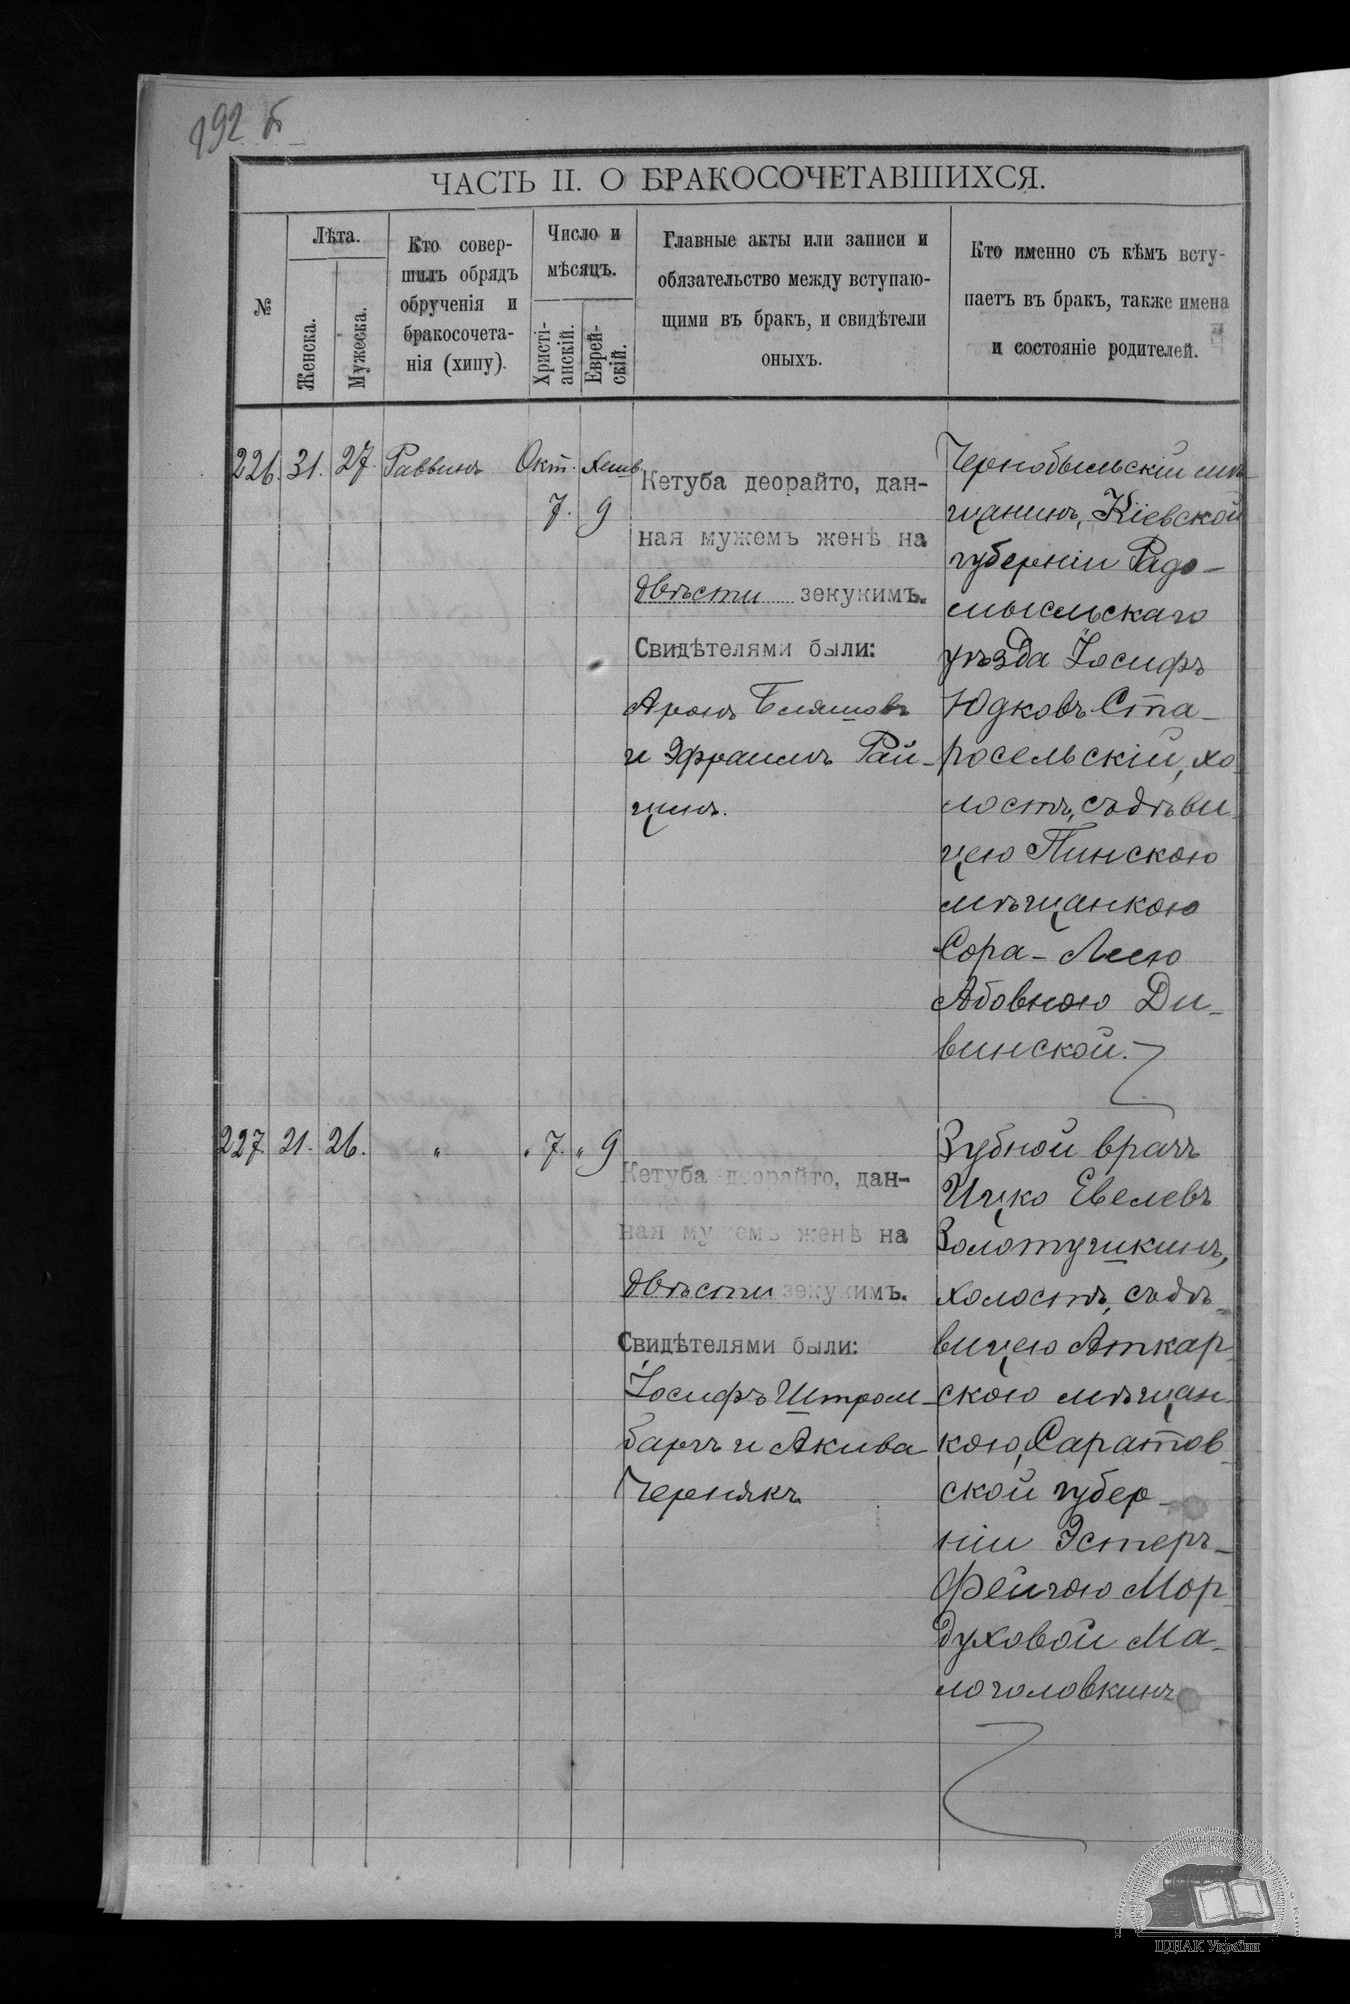 192 б
ЧАСТЬ II. О БРАКОСОЧЕТАВШИХСЯ.
№
Лѣта.
Женска.
Мужеска.
Кто совер-
шилъ обрядъ
обрученія и
бракосочета-
нія (хипу).
Число и
мѣсяцъ.
Христі-
анскій.
Еврей-
скій.
Главные акты или записи и
обязательство между вступаю-
щими въ бракъ, и свидѣтели
оныхъ.
Кто именно съ кѣмъ всту-
паетъ въ бракъ, также имена
и состояніе родителей.
226. 31. 27. Раввинъ Окт. Хешв.
7. 9
Кетуба деорайто, дан-
ная мужемъ женѣ на
двѣсти зекукимъ.
Свидѣтелями были:
Аронъ Бляшовъ
и Эфраимъ Рай-
цинъ.
Чернобыльскій мѣ-
щанинъ, Кіевской
губерніи Радо-
мысльскаго
уѣзда Іосифъ
Юдковъ Ста-
росельскій, хо-
лостъ, съ дѣви-
цею Пинскою
мѣщанкою
Сора-Леею
Абовною Ди-
винской.
227. 21. 26. " " 7. " 9
Кетуба деорайто, дан-
ная мужемъ женѣ на
двѣсти зекукимъ.
Свидѣтелями были:
Іосифъ Штром-
бархъ и Акива
Чернякъ
Зубной врачъ
Ицко Евелевъ
Золотушкинъ,
холостъ, съ дѣ-
вицею Аткар-
скою мѣщан-
кою, Саратов-
ской губер-
ніи Эстеръ-
Фейгою Мор-
духовой Ма-
логоловкинъ
ЦДІАК України